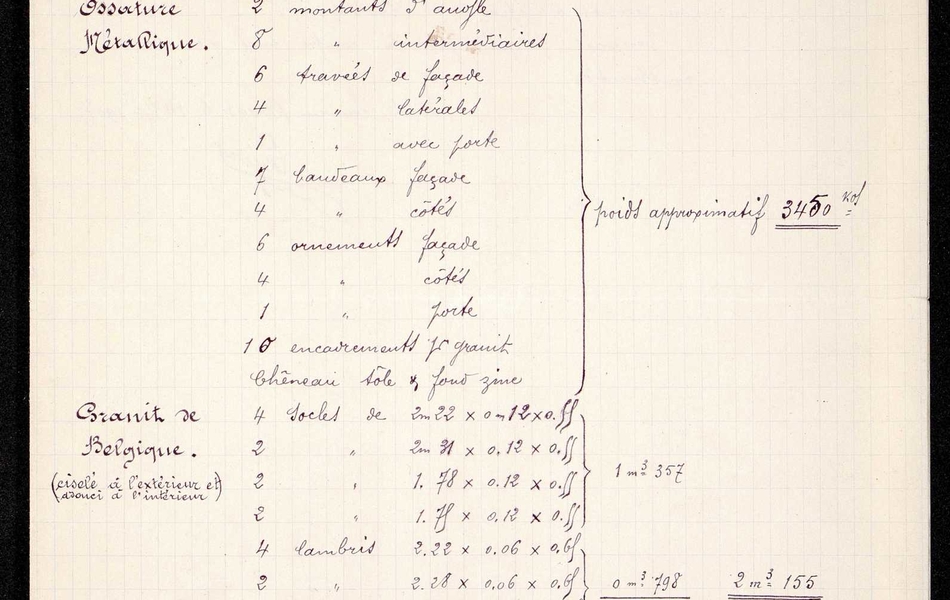 Ossature 2 montants d'angle
Métallique. 8 " intermédiaires
6 travées de façade
4 " latérales
1 " avec porte
7 bandeaux façade
4 " côtés
poids approximatif 3450 kos
6 ornements façade
4 " côtés
1 " porte
10 encadrements pr granit
Chêneau tôle & fond zinc
Granit de 4 Socles de 2m22 x 0m12 x 0.55
Belgique. 2 " 2m31 x 0.12 x 0.55
1 m3 357
(ciselé à l'extérieur et 2 " 1.78 x 0.12 x 0.55
adouci à l'intérieur)
2 " 1.75 x 0.12 x 0.55
4 lambris 2.22 x 0.06 x 0.65
2 " 2.28 x 0.06 x 0.65 0 m3 798 2 m3 155